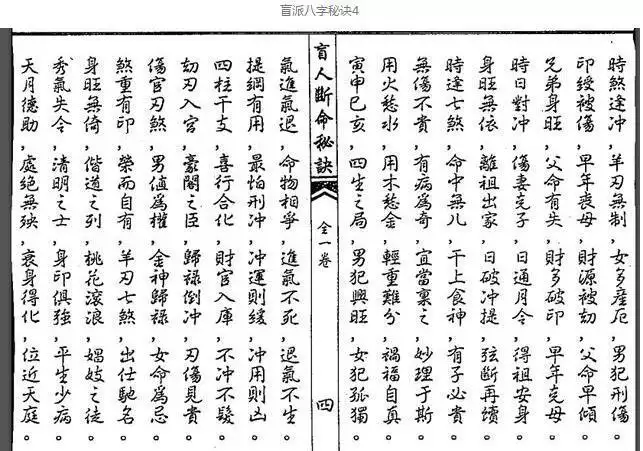 盲派八字秘诀4
時煞逢冲,羊刃無制,女多產厄,男犯刑傷。
印綬被傷,早年喪母,財源被劫,父命早傾。
兄弟身旺,父命有失,財多破印,早年克母。
時日對冲,傷妻克子,日通月令,得祖安身。
身旺無依,離祖出家,日破冲提,弦斷再續。
時逢七煞,命中無兒,干上食神,有子必貴。
無傷不貴,有病爲奇,宜當裏之,妙理于斯。
用火愁水,用木愁金,輕重難分,禍福自真。
寅申巳亥,四生之局,男犯興旺,女犯孤獨。
盲人斷命秘訣 全一卷 四
氣進氣退,命物相爭,進氣不死,退氣不生。
提綱有用,最怕刑冲,冲運則緩,冲用則凶。
四柱干支,喜行合化,財官入庫,不冲不發。
刧刃入宮,豪閣之臣,歸祿倒冲,刃傷見貴。
傷官刃煞,男值爲權,金神歸祿,女命爲忌。
煞重有印,榮而自有,羊刃七煞,出仕馳名。
身旺無倚,偕道之列,桃花滾浪,娼妓之徒。
秀氣失令,清明之士,身印俱強,平生少病。
天月德助,處絕無殃,衰身得化,位近天庭。